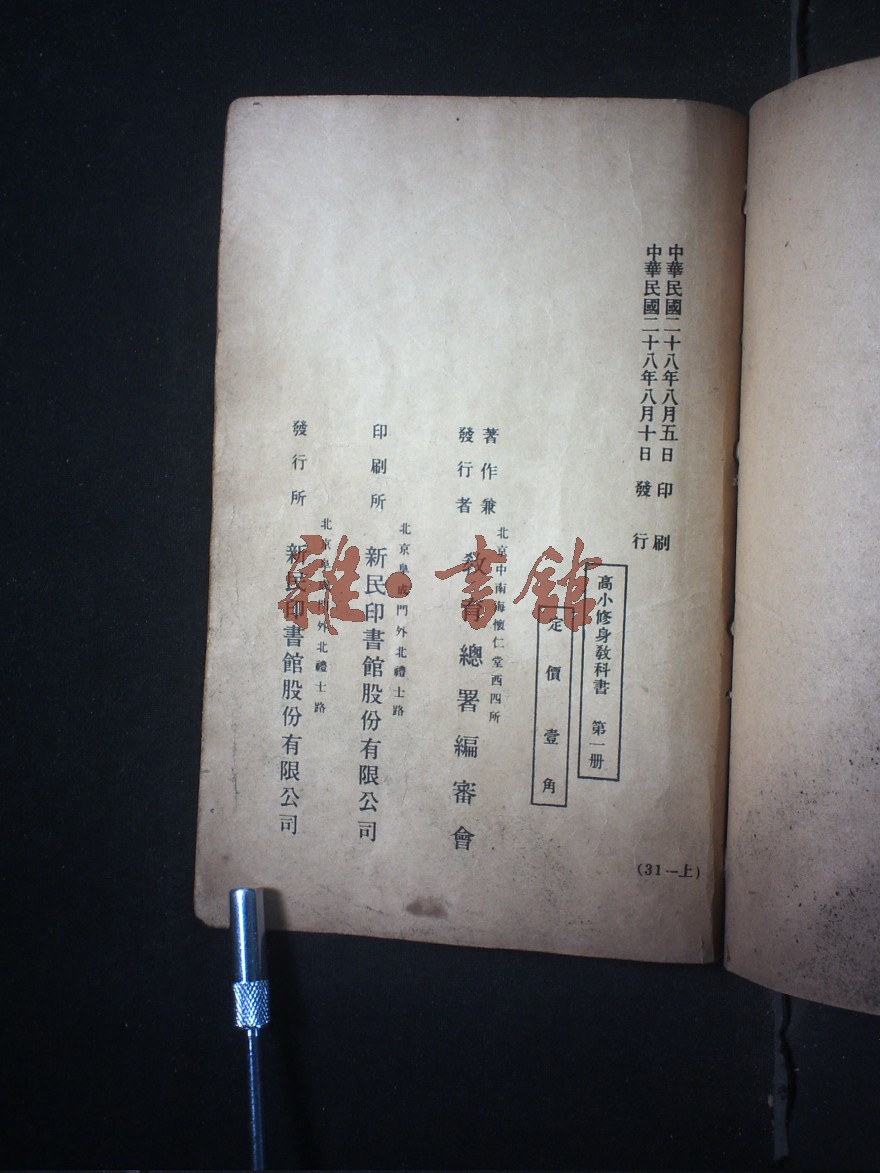 中華民國二十八年八月五日 印刷
中華民國二十八年八月十日 發行
高小修身教科書 第一册
定價壹角
著作兼
發行者
北京中南海懷仁堂西四所
教育總署編審會
印刷所
北京阜成門外北禮士路
新民印書館股份有限公司
發行所
北京阜成門外北禮士路
新民印書館股份有限公司
(31—上)
雜·書館